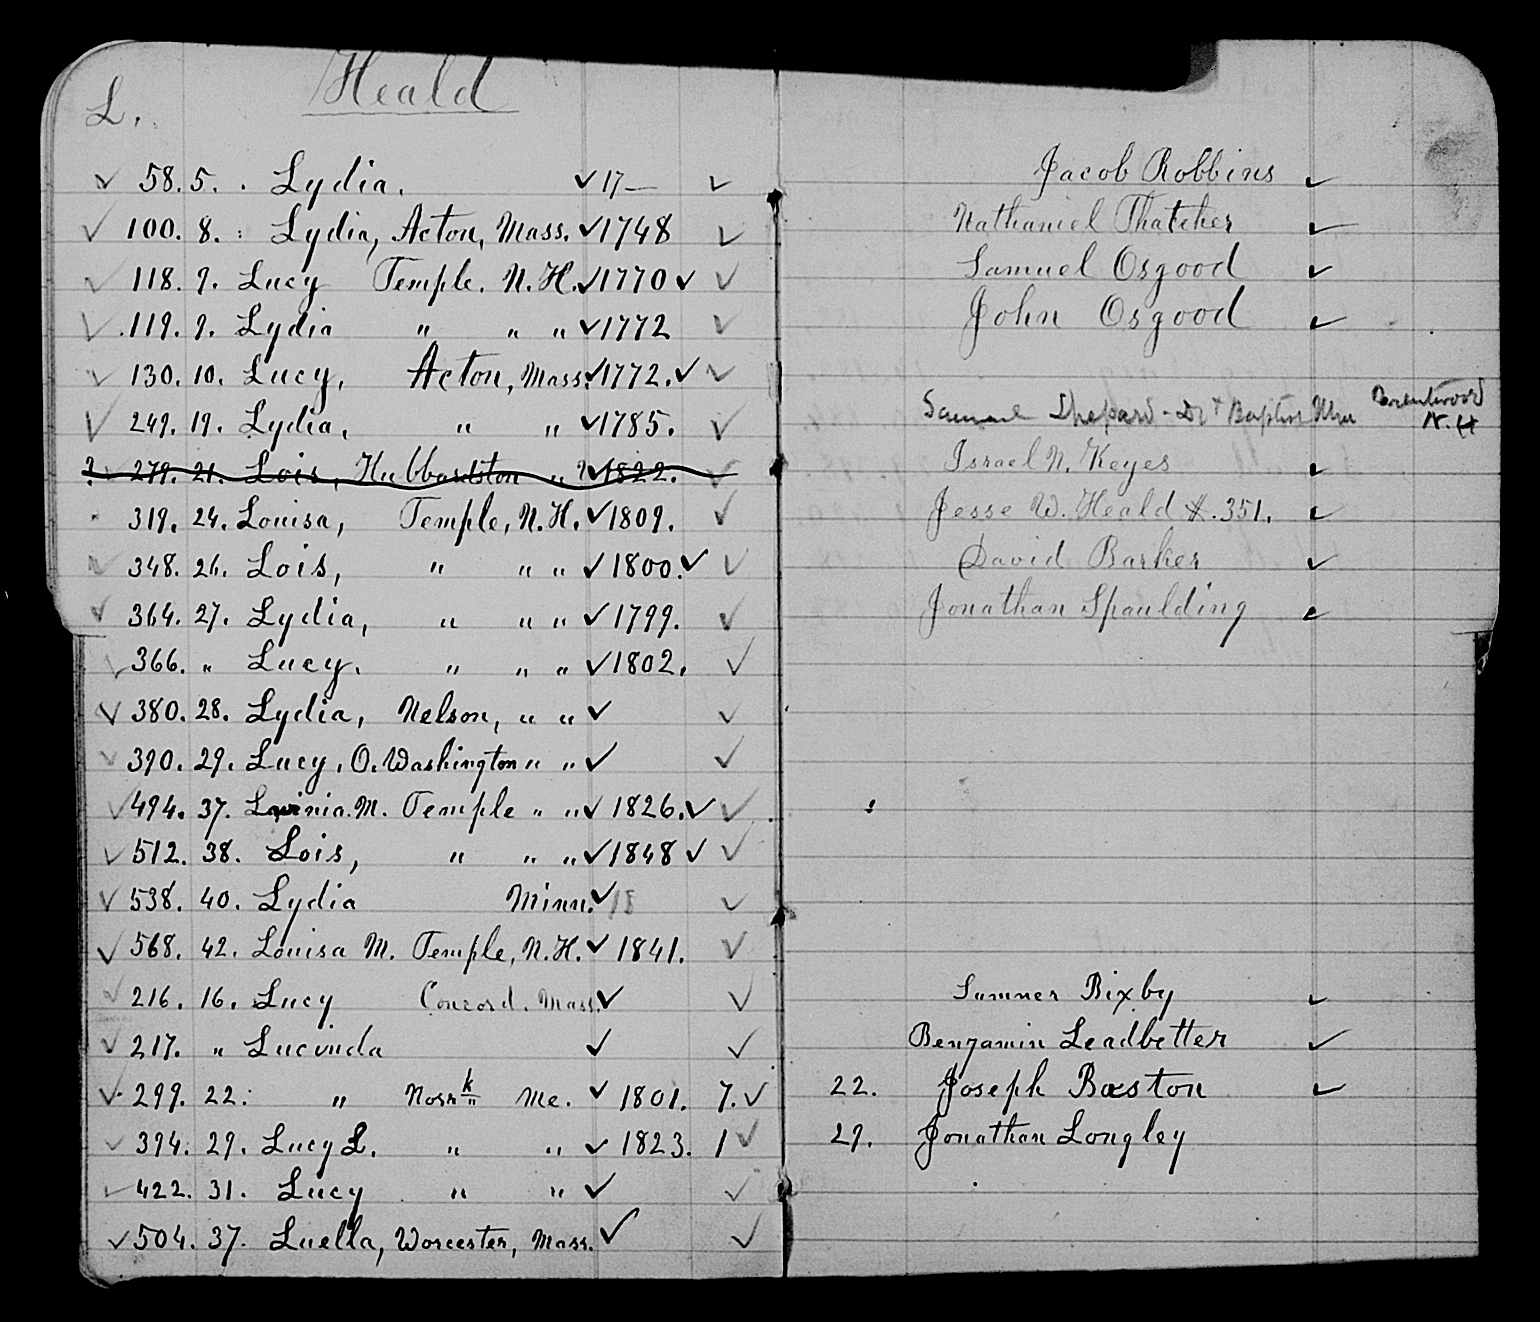 L. Heald
✓ 58. 5. . Lydia. ✓ 17— ✓ Jacob Robbins ✓
✓ 100. 8. : Lydia, Acton, Mass. ✓ 1748 ✓ Nathaniel Thatcher ✓
✓ 118. 9. Lucy Temple. N.H. ✓ 1770 ✓ ✓ Samuel Osgood ✓
✓ 119. 9. Lydia " " " ✓ 1772 ✓ John Osgood ✓
✓ 130. 10. Lucy, Acton, Mass. ✓ 1772. ✓ ✓
✓ 249. 19. Lydia, " " ✓ 1785. ✓ Samuel Shepard - Dr & Baptist Brentwood N.H
? 279. 21. Lois, Hubbardston " ? ✓ 1822. ✓ Israel N. Keyes ✓
319. 24. Louisa, Temple, N.H. ✓ 1809. ✓ Jesse W. Heald #.351. ✓
✓ 348. 26. Lois, " " " ✓ 1800. ✓ ✓ David Barker ✓
✓ 364. 27. Lydia, " " " ✓ 1799. ✓ Jonathan Spaulding ✓
✓ 366. " Lucy. " " " ✓ 1802. ✓
✓ 380. 28. Lydia, Nelson, " " ✓ ✓
✓ 390. 29. Lucy. O. Washington " " ✓ ✓
✓ 494. 37. Lavinia. M. Temple " " ✓ 1826. ✓ ✓
✓ 512. 38. Lois, " " " ✓ 1848 ✓ ✓
✓ 538. 40. Lydia Minn. ✓ 18 ✓
✓ 568. 42. Louisa M. Temple, N.H. ✓ 1841. ✓
✓ 216. 16. Lucy Concord. Mass. ✓ ✓ Sumner Bixby ✓
✓ 217. " Lucinda ✓ ✓ Benjamin Leadbetter ✓
✓ 299. 22. " Norr'k Me. ✓ 1801. 7. ✓ 22. Joseph Boston ✓
✓ 394. 29. Lucy L. " " ✓ 1823. 1 ✓ 29. Jonathan Longley
✓ 422. 31. Lucy " " ✓ ✓
✓ 504. 37. Luella, Worcester, Mass. ✓ ✓